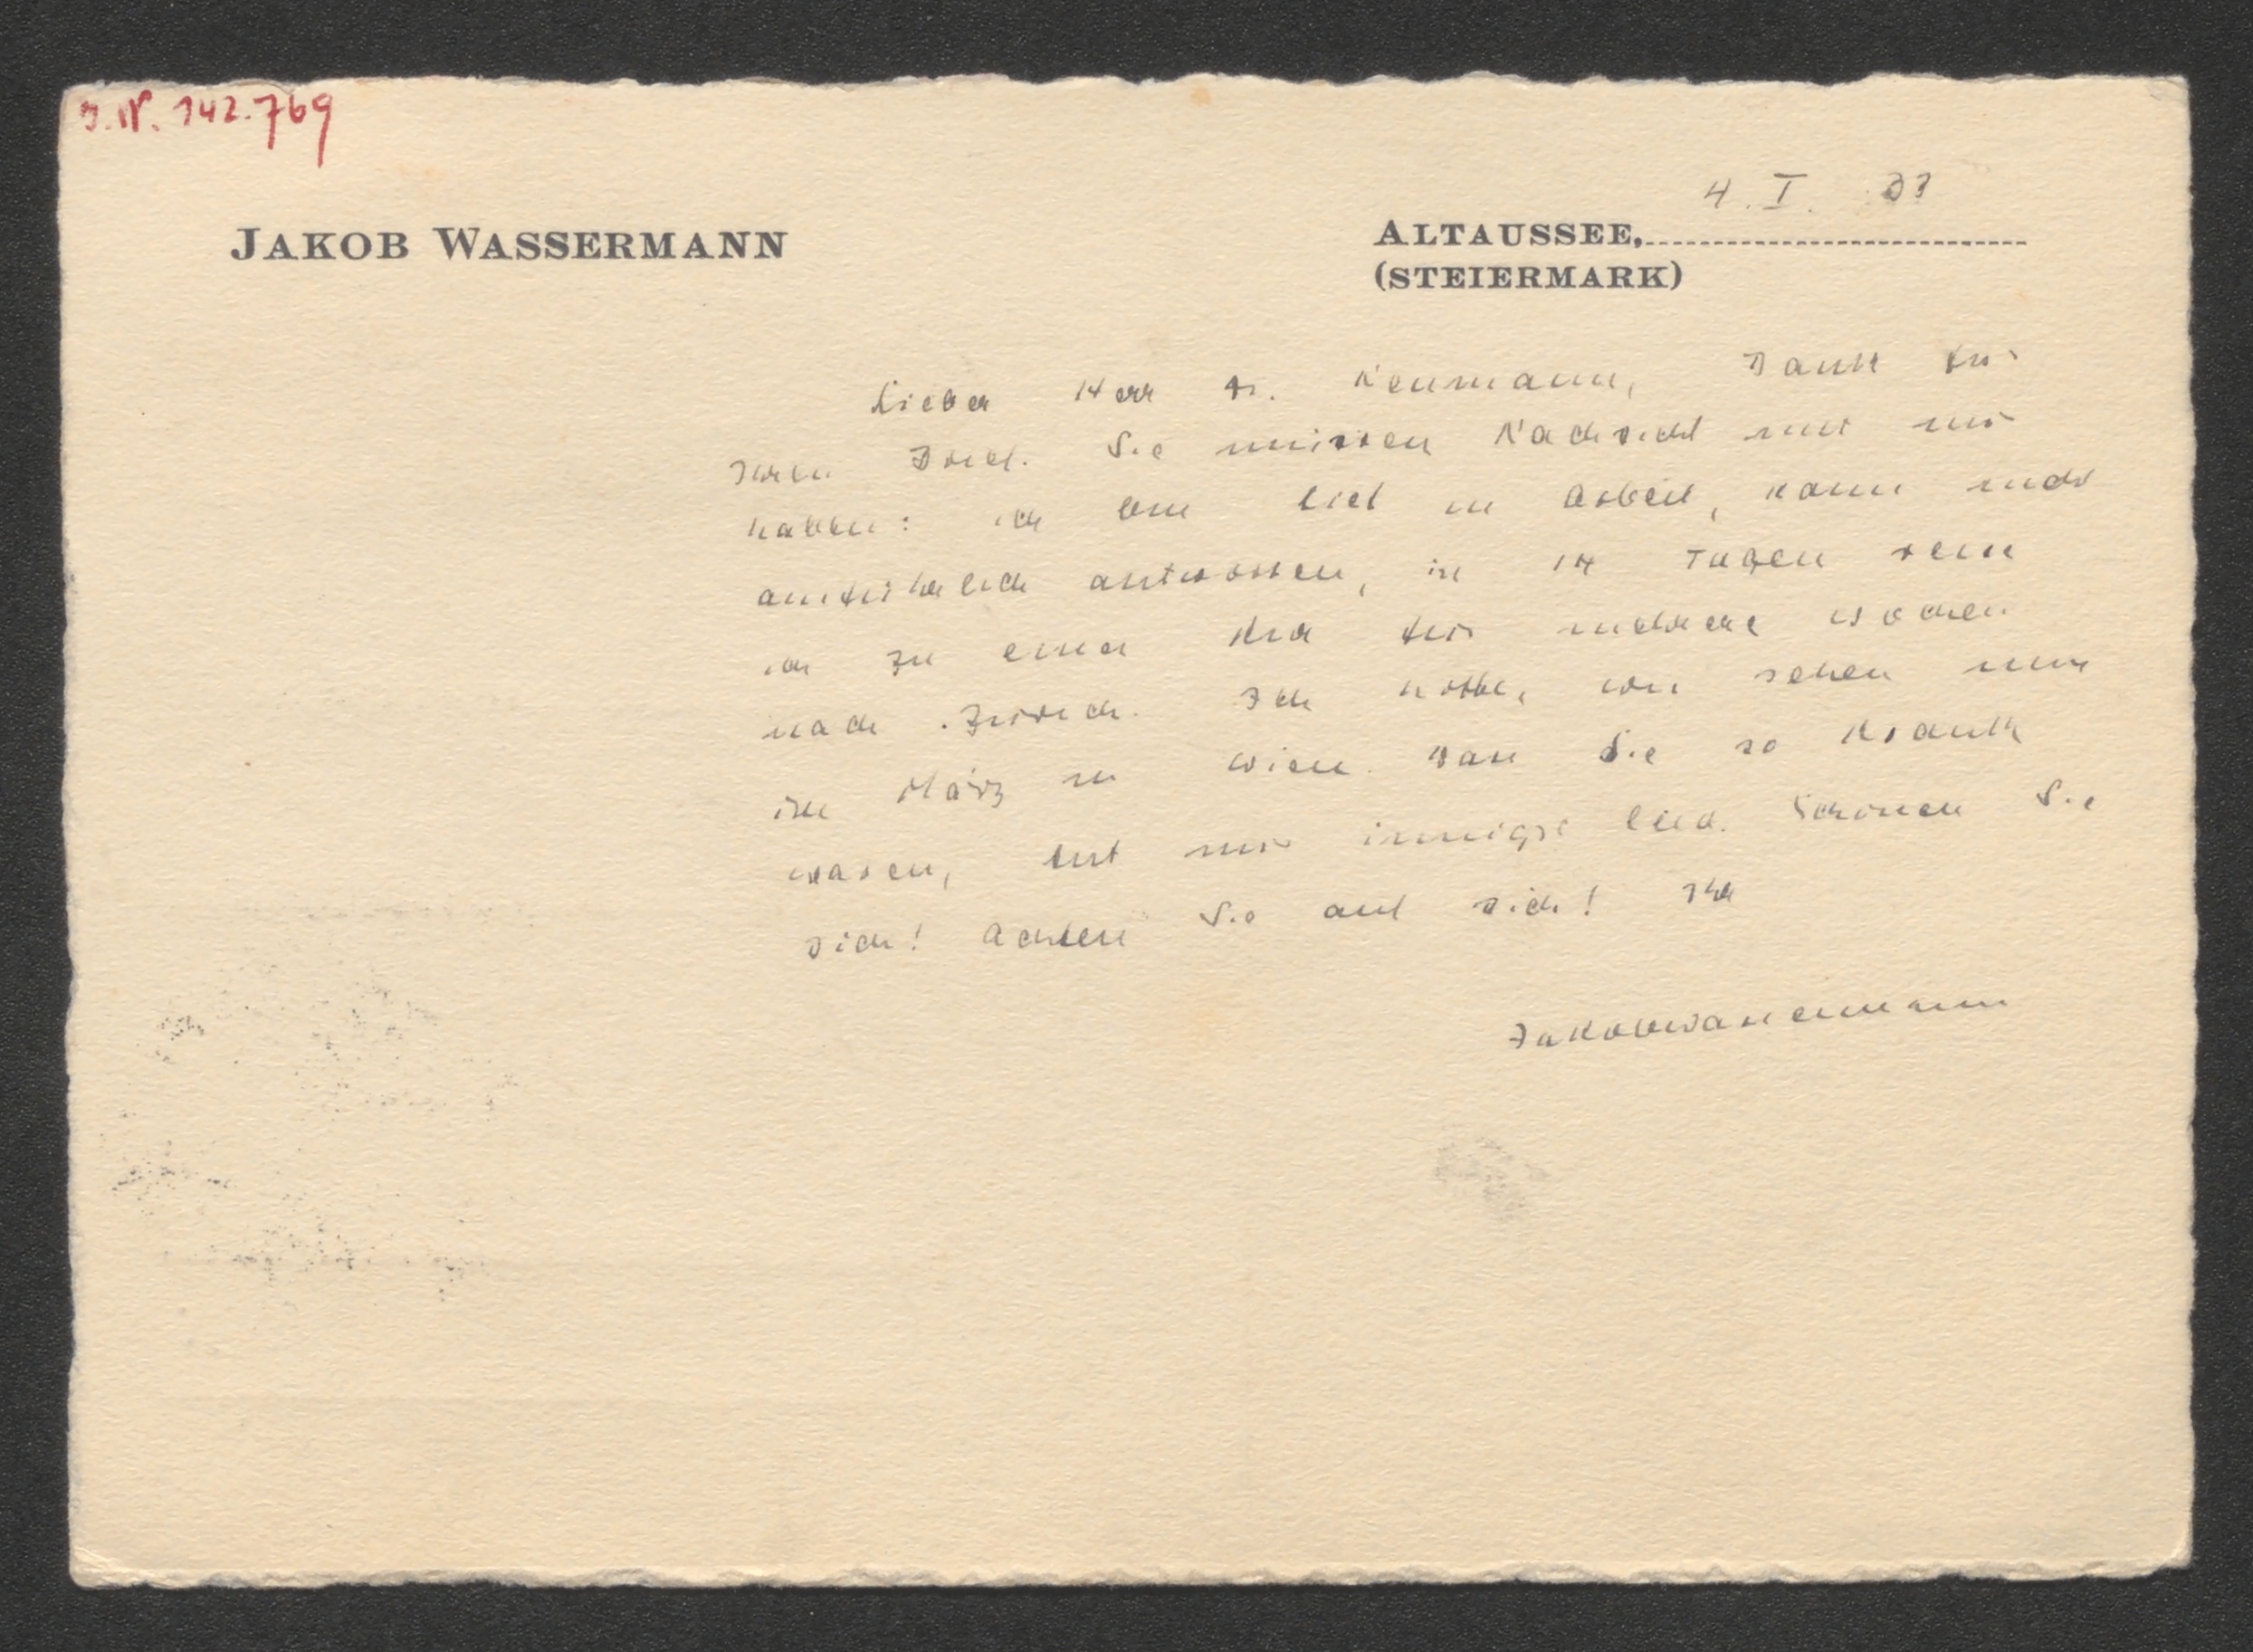 I. N. 142.769
4. I. 33
JAKOB WASSERMANN
ALTAUSSEE,
(STEIERMARK)
Lieber Herr Dr. Neumann, Dank für
Ihren Brief. Sie müssen Nachsicht mit mir
haben: ich bin tief in Arbeit, kann nicht
ausführlich antworten, in 14 Tagen reise
ich zu einer Kur für mehrere Wochen
nach Zürich. Ich hoffe, wir sehen uns
im März in Wien. Dass Sie so krank
waren, tut mir innigst leid. Schonen Sie
sich! Achten Sie auf sich! Ihr
Jakob Wassermann